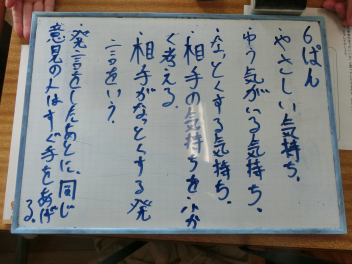 6ぱん
・やさしい気持ち。
・ゆう気がいる気持ち。
・なっとくする気持ち。
・相手の気持ちをふか
く考える。
・相手がなっとくする発
言をいう。
・発言をしたあとに、同じ
意見の人はすぐ手をあげ
る。